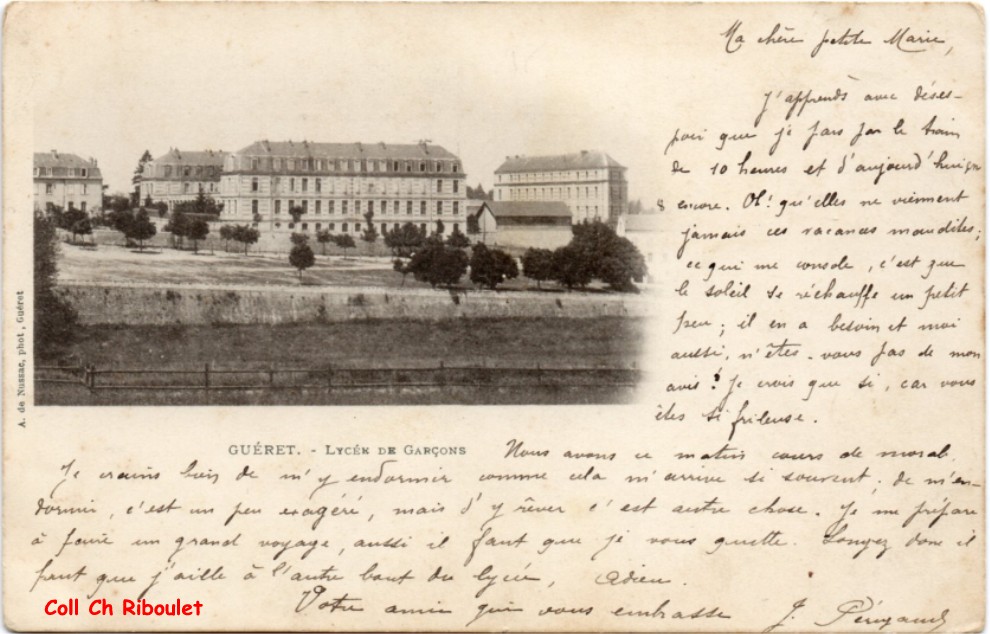 Ma chère petite Marie,
J'apprends avec déses-
poir que je pars par le train
de 10 heures et d'aujourd'hui en
8 encore. Oh! qu'elles ne viennent
jamais ces vacances maudites;
ce qui me console, c'est que
le soleil se réchauffe un petit
peu; il en a besoin et moi
aussi, n'êtes-vous pas de mon
avis? Je crois que si, car vous
êtes si frileuse.
A. de Nussac, phot., Guéret
GUÉRET. - LYCÉE DE GARÇONS
Nous avons ce matin cours de morale.
Je crains bien de m'y endormir comme cela m'arrive si souvent; de m'en-
dormir, c'est un peu exagéré, mais d'y rêver c'est autre chose. Je me prépare
à faire un grand voyage, aussi il faut que je vous quitte. Songez donc il
faut que j'aille à l'autre bout du lycée, adieu.
Votre amie qui vous embrasse J.
Coll Ch Riboulet